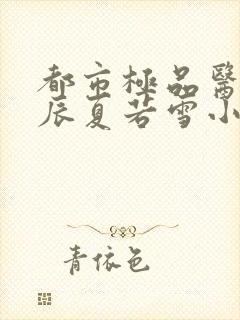 都市極品醫
辰夏若雪小
青依色